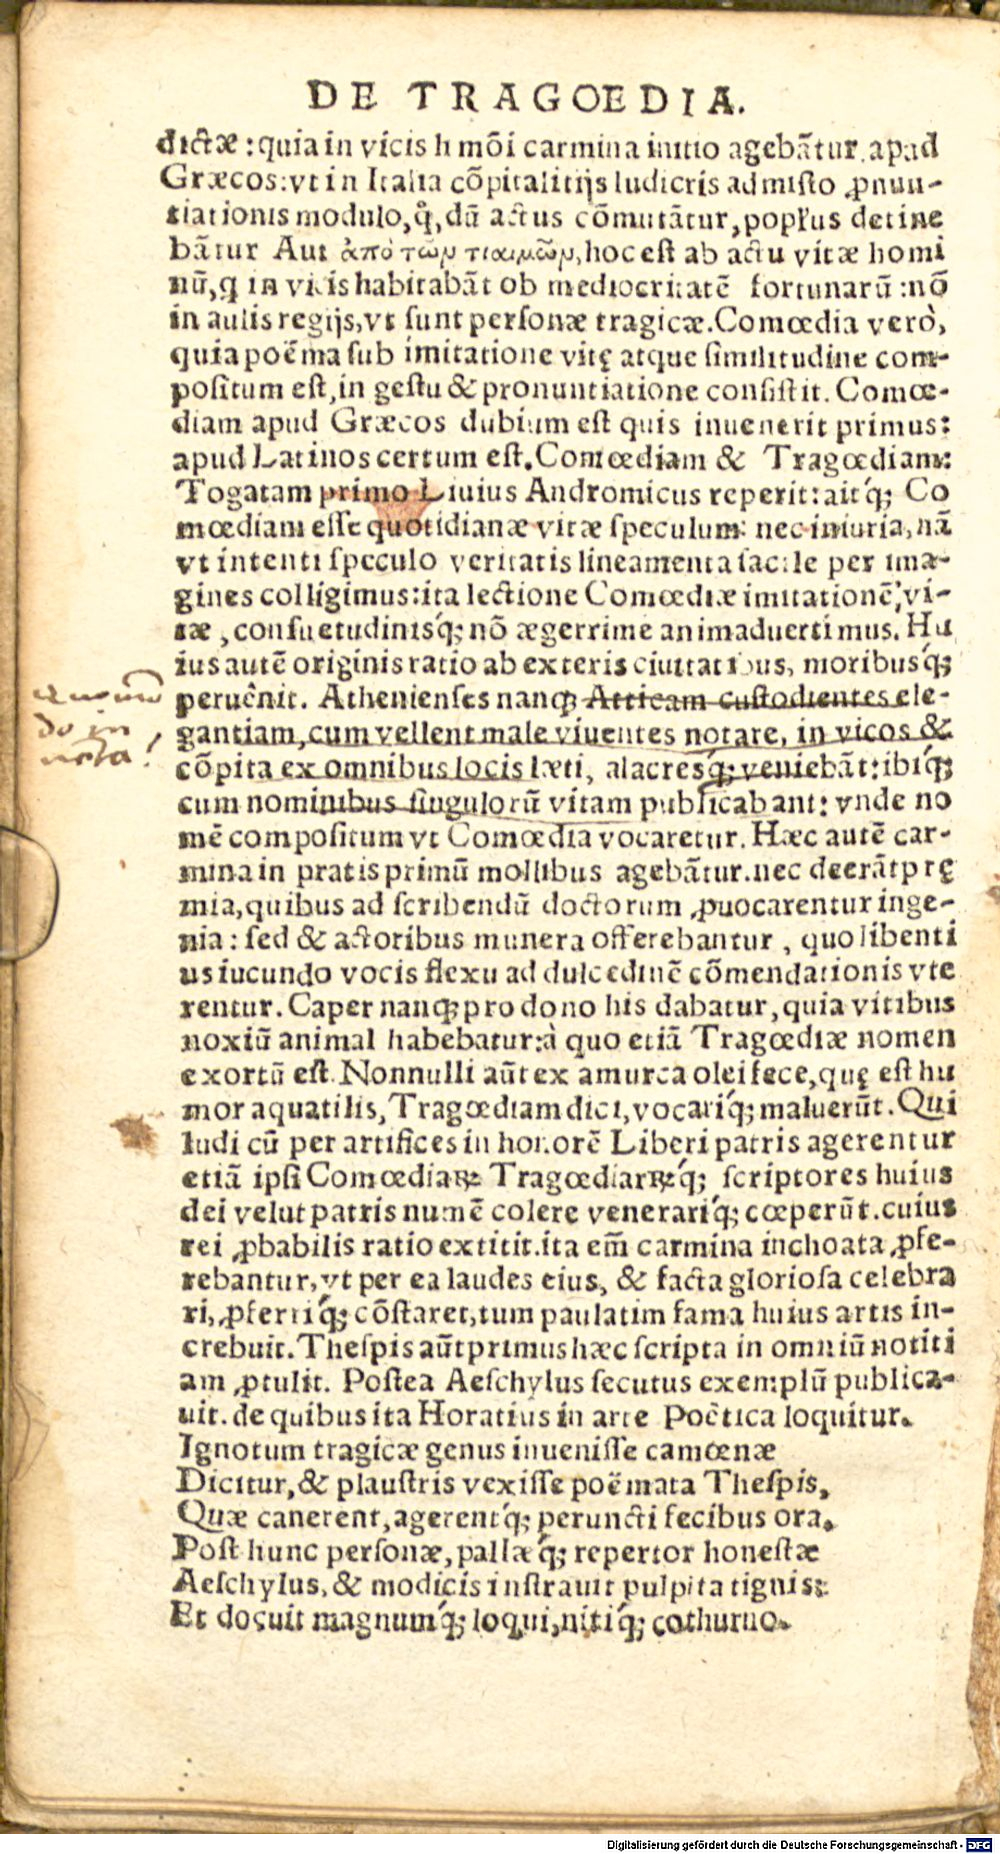 DE TRAGOEDIA.
dictæ: quia in vicis hmõi carmina initio agebãtur, apud
Græcos: vt in Italia cõpitalitijs ludicris admisto ꝓnun-
tiationis modulo, q̊, dũ actus cõmutãtur, popľus detine
bãtur Aut ἀπὸ τῶν hoc est ab actu vitæ homi
nũ, q in vicis habitabãt ob mediocritatẽ fortunarũ: nõ
in aulis regijs, vt sunt personæ tragicæ. Comœdia verò,
quia poëma sub imitatione vitę atque similitudine com-
positum est, in gestu & pronuntiatione consistit. Comœ-
diam apud Græcos dubium est quis inuenerit primus:
apud Latinos certum est. Comœdiam & Tragœdiam:
Togatam primo Liuius Andromicus reperit: aitq́; Co
mœdiam esse quotidianæ vitæ speculum: nec iniuria, nã
vt intenti speculo veritatis lineamenta facile per ima-
gines colligimus: ita lectione Comœdiæ imitationẽ, vi-
tæ, consuetudinisq́; nõ ægerrime animaduertimus. Hu
ius autẽ originis ratio ab exteris ciuitatibus, moribusq́;
peruênit. Athenienses nanq; Atticam custodientes ele-
gantiam, cum vellent male viuentes notare, in vicos &
cõpita ex omnibus locis læti, alacresq́; veniebãt: ibiq́;
cum nominibus singulorũ vitam publicabant: vnde no
mẽ compositum vt Comœdia vocaretur. Hæc autẽ car-
mina in pratis primũ mollibus agebãtur. nec deerãt prę
mia, quibus ad scribendũ doctorum ꝓuocarentur inge-
nia: sed & actoribus munera offerebantur, quo libenti
us iucundo vocis flexu ad dulcedinẽ cõmendationis vte
rentur. Caper nanq; pro dono his dabatur, quia vitibus
noxiũ animal habebatur: à quo etiã Tragœdiæ nomen
exortũ est. Nonnulli aũt ex amurca olei fece, quę est hu
mor aquatilis, Tragœdiam dici, vocariq́; maluerũt. Qui
ludi cũ per artifices in honorẽ Liberi patris agerentur
etiã ipsi Comœdiaꝝ Tragœdiarꝝq́; scriptores huius
dei velut patris numẽ colere venerariq́; cœperũt. cuius
rei ꝓbabilis ratio extitit. ita em̃ carmina inchoata ꝓfe-
rebantur, vt per ea laudes eius, & facta gloriosa celebra
ri, ꝓferriq́; cõstaret, tum paulatim fama huius artis in-
crebuit. Thespis aũt primus hæc scripta in omniũ notiti
am ꝓtulit. Postea Aeschylus secutus exemplũ publica-
uit. de quibus ita Horatius in arte Poëtica loquitur.
Ignotum tragicæ genus inuenisse camœnæ
Dicitur, & plaustris vexisse poëmata Thespis,
Quæ canerent, agerentq́; peruncti fecibus ora.
Post hunc personæ, pallæq́; repertor honestæ
Aeschylus, & modicis instrauit pulpita tignis:
Et docuit magnumq́; loqui, nitiq́; cothurno.
do in
nota!
Digitalisierung gefördert durch die Deutsche Forschungsgemeinschaft - DFG